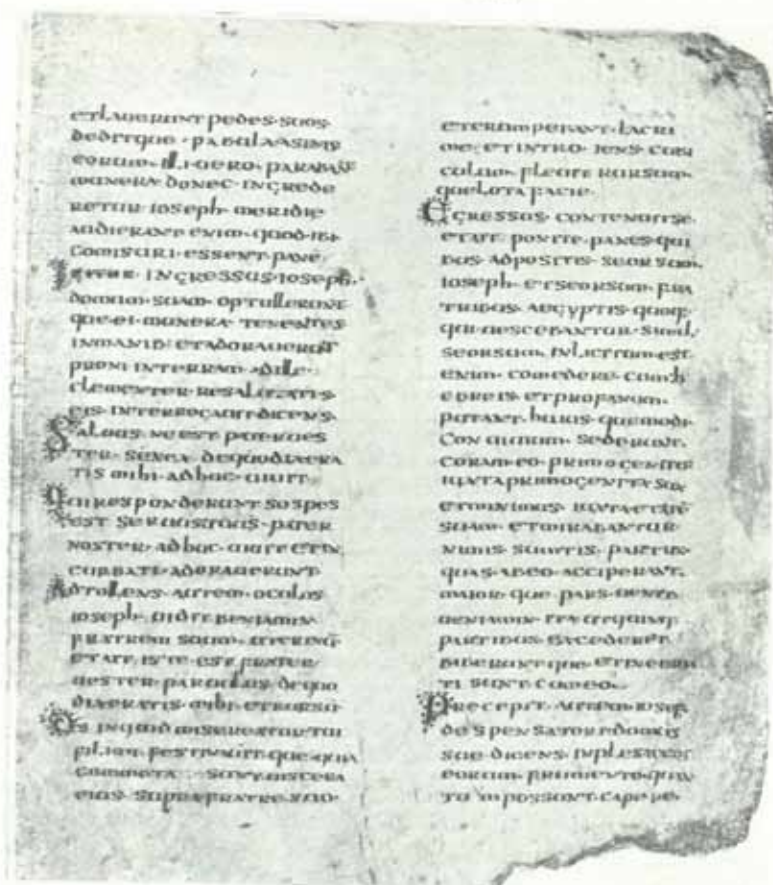 et lauerunt pedes·suos·
deditque·pabula asinis
eorum·illi·uero·parabant
munera donec·ingrede
retur ioseph·meridie
audierant enim·quod·ibi·
comisuri·essent pane·
Igitur·ingressus·ioseph·
domum·suam·optullerunt
que·ei·munera·tenentes
in manib; et adorauerunt
proni interram·ad ille·
clementer·resalutatis·
eis·interrogauit dicens·
Saluus·ne est·pater ues
ter·senex·de quo dixera
tis mihi·adhuc·uiuit·
Qui responderunt sospes
est seruus tuus·pater
noster·adhuc·uiuit et in
curbati·aderauerunt·
Adtollens·autem·oculos
ioseph·uidit beniamin
fratrem suum·uterinu
et ait·iste·est·frater·
uester·paruulus·de quo
dixeratis·mihi·et rursu·
Ds inquid misereatur tui
fili mi·festinauit·que·quia
commota·sunt·uiscera
eius·supra fratre·suo·
et erumpebant·lacri
me·et intro·iens·cubi
culum·fleuit·rursum·
que lota facie·
Egressus·continuit se·
et ait·ponite·panes·qui
bus·adpositis·seorsum·
ioseph·et seorsum·fra
tribus·aegyptis·quoq;
qui uescebantur·simul·
seorsum·inlicitum·est·
enim·comedere·cum h
ebreis·et profanum·
putant·huius·quemodi·
conuiuium·sederunt·
coram·eo·primogenitus
iuxta primogenita sua
et minimus·iuxta etate
suam·et mirabantur·
nimis·sumtis·partib;
quas·ab eo·acciperant·
maior·que·pars·uenit
beniamin·ita ut quinq;
partibus·excederet·
biberuntque·et inebria
ti sunt·cum eo·
Precepit·autem·iosep
dispensatori domus
sue·dicens·imple saccos
eorum·frumento·quan
tum possunt·capere·